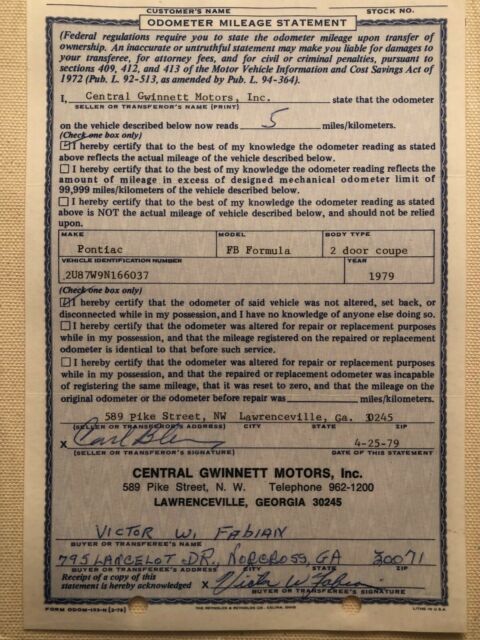 CUSTOMER'S NAME STOCK NO.
ODOMETER MILEAGE STATEMENT
(Federal regulations require you to state the odometer mileage upon transfer of
ownership. An inaccurate or untruthful statement may make you liable for damages to
your transferee, for attorney fees, and for civil or criminal penalties, pursuant to
sections 409, 412, and 413 of the Motor Vehicle Information and Cost Savings Act of
1972 (Pub. L. 92-513, as amended by Pub. L. 94-364).
I, Central Gwinnett Motors, Inc. state that the odometer
SELLER OR TRANSFEROR'S NAME (PRINT)
on the vehicle described below now reads 5 miles/kilometers.
(Check one box only)
I hereby certify that to the best of my knowledge the odometer reading as stated
above reflects the actual mileage of the vehicle described below.
I hereby certify that to the best of my knowledge the odometer reading reflects the
amount of mileage in excess of designed mechanical odometer limit of
99,999 miles/kilometers of the vehicle described below.
I hereby certify that to the best of my knowledge the odometer reading as stated
above is NOT the actual mileage of vehicle described below, and should not be relied
upon.
MAKE MODEL BODY TYPE
Pontiac FB Formula 2 door coupe
VEHICLE IDENTIFICATION NUMBER YEAR
2U87W9N166037 1979
(Check one box only)
I hereby certify that the odometer of said vehicle was not altered, set back, or
disconnected while in my possession, and I have no knowledge of anyone else doing so.
I hereby certify that the odometer was altered for repair or replacement purposes
while in my possession, and that the mileage registered on the repaired or replacement
odometer is identical to that before such service.
I hereby certify that the odometer was altered for repair or replacement purposes
while in my possession, and that the repaired or replacement odometer was incapable
of registering the same mileage, that it was reset to zero, and that the mileage on
the original odometer or the odometer before repair was miles/kilometers.
589 Pike Street, NW Lawrenceville, Ga. 30245
(SELLER OR TRANSFEROR'S ADDRESS) CITY STATE ZIP
X 4-25-79
(SELLER OR TRANSFEROR'S SIGNATURE) DATE OF THIS STATEMENT
CENTRAL GWINNETT MOTORS, Inc.
589 Pike Street, N. W. Telephone 962-1200
LAWRENCEVILLE, GEORGIA 30245
VICTOR W. FABIAN
BUYER OR TRANSFEREE'S NAME
795 LANCELOT DR, NORCROSS, GA 30071
BUYER OR TRANSFEREE'S ADDRESS CITY STATE ZIP
Receipt of a copy of this
statement is hereby acknowledged X Victor W Fabian
BUYER OR TRANSFEREE'S SIGNATURE
THE REYNOLDS & REYNOLDS CO., CELINA, OHIO LITHO IN U.S.A.